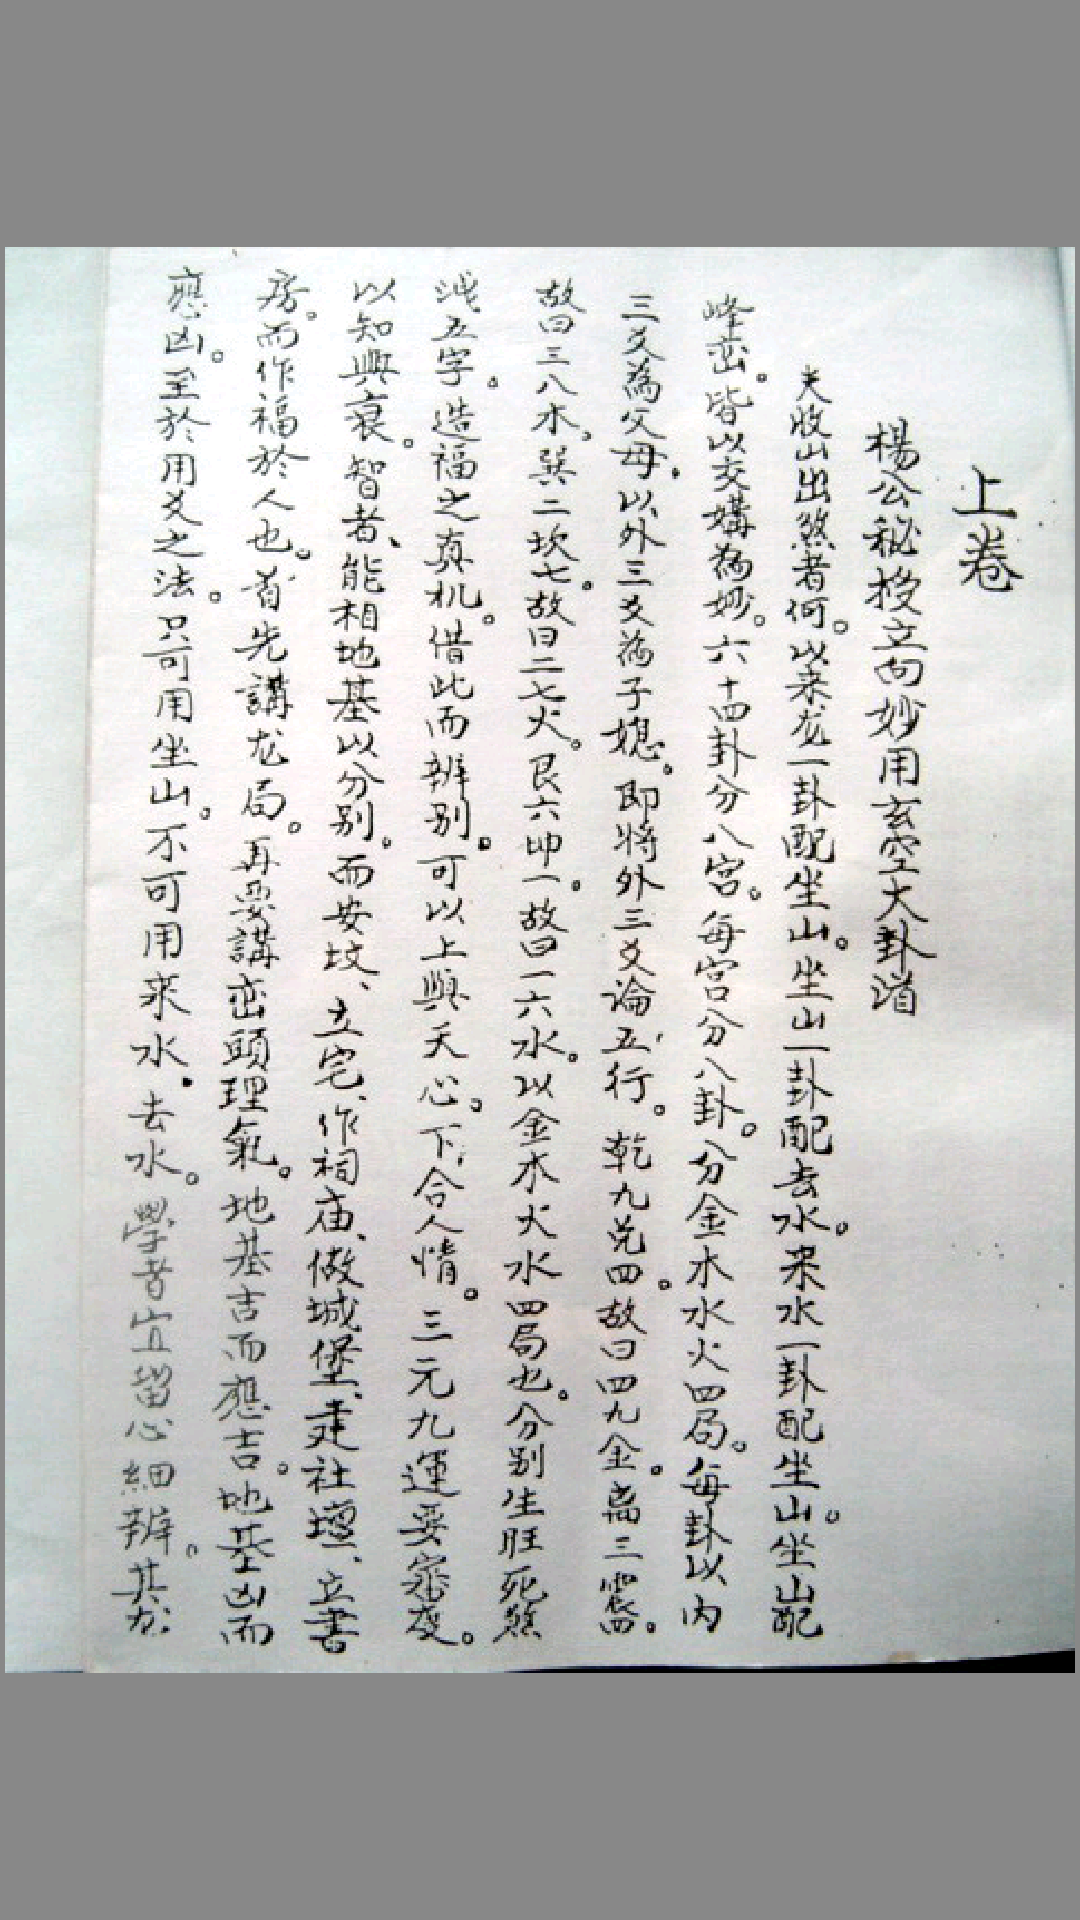 上卷
楊公秘授立向妙用玄空大卦道
夫收山出煞者何。以来龙一卦配坐山。坐山一卦配去水。来水一卦配坐山。坐山配
峰峦。皆以交媾為妙。六十四卦分八宫。每宫分八卦。分金木水火四局。每卦以内
三爻為父母。以外三爻為子媳。即将外三爻論五行。乾九兑四。故曰四九金。离三震八。
故曰三八木。巽二坎七。故曰二七火。艮六坤一。故曰一六水。以金木火水四局也。分别生旺死煞
洩五字。造福之真机。借此而辨别。可以上與天心。下合人情。三元九運要察度。
以知興衰。智者、能相地基以分别。而安坟、立宅、作祠庙、做城堡、建社壇、立書
房。而作福於人也。首先講龙局。再要講峦頭理氣。地基吉而應吉。地基凶而
應凶。至於用爻之法。只可用坐山。不可用来水。去水。學者宜留心細辨。其